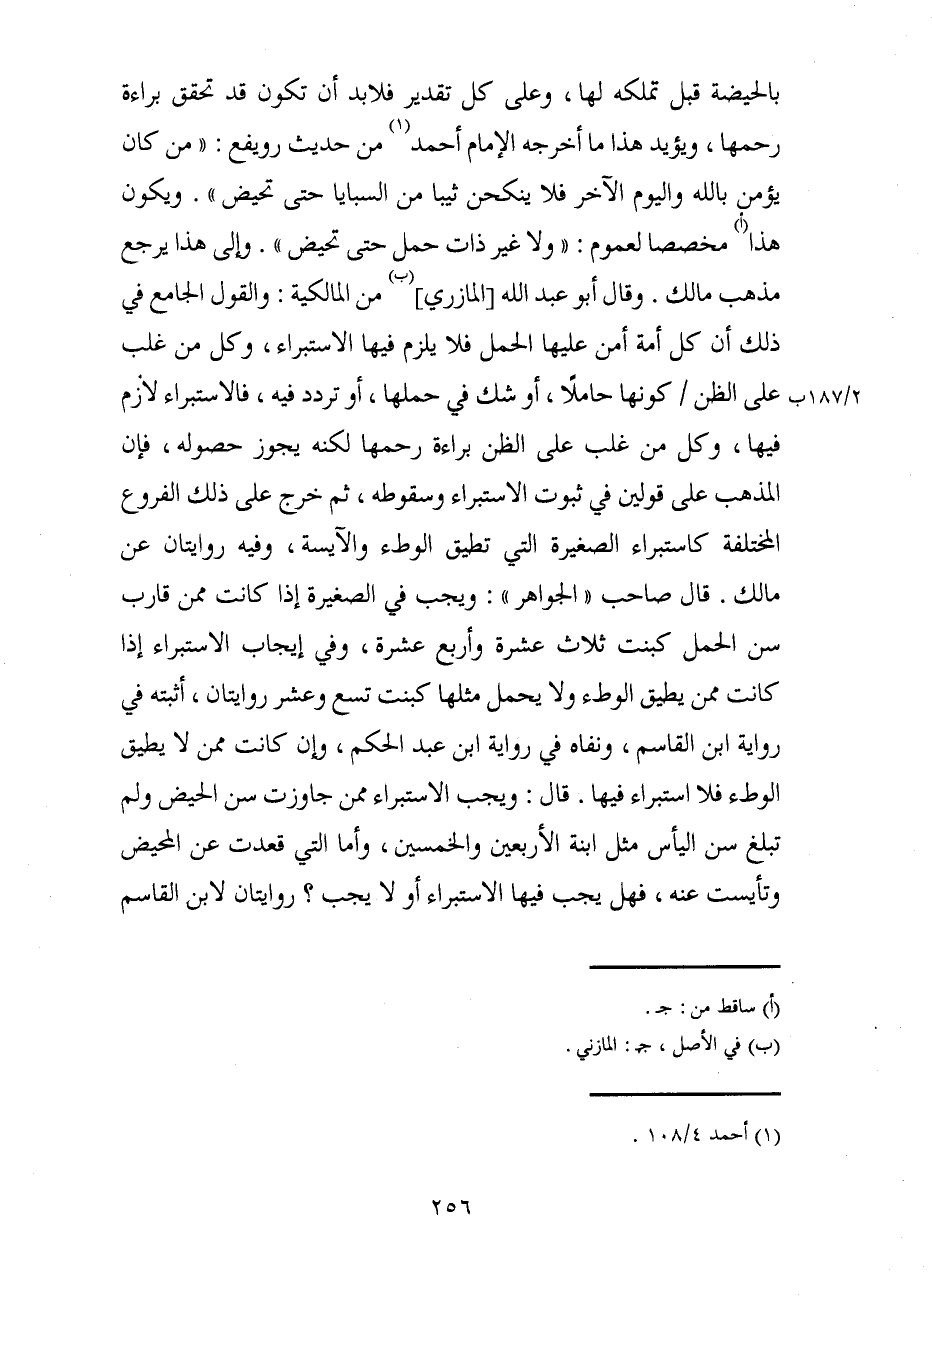 بالحيضة قبل تملكه لها ، وعلى كل تقدير فلابد أن تكون قد تحقق براءة
رحمها ، ويؤيد هذا ما أخرجه الإمام أحمد(١) من حديث رويفع : « من كان
يؤمن بالله واليوم الآخر فلا ينكحن ثيبا من السبايا حتى تحيض » . ويكون
هذا(أ) مخصصا لعموم : « ولا غير ذات حمل حتى تحيض » . وإلى هذا يرجع
مذهب مالك . وقال أبو عبد الله [المازري](ب) من المالكية : والقول الجامع في
ذلك أن كل أمة أمن عليها الحمل فلا يلزم فيها الاستبراء ، وكل من غلب
على الظن / كونها حاملًا ، أو شك في حملها ، أو تردد فيه ، فالاستبراء لازم ٢/١٨٧ب
فيها ، وكل من غلب على الظن براءة رحمها لكنه يجوز حصوله ، فإن
المذهب على قولين في ثبوت الاستبراء وسقوطه ، ثم خرج على ذلك الفروع
المختلفة كاستبراء الصغيرة التي تطيق الوطء والآيسة ، وفيه روايتان عن
مالك . قال صاحب « الجواهر » : ويجب في الصغيرة إذا كانت ممن قارب
سن الحمل كبنت ثلاث عشرة وأربع عشرة ، وفي إيجاب الاستبراء إذا
كانت ممن يطيق الوطء ولا يحمل مثلها كبنت تسع وعشر روايتان ، أثبته في
رواية ابن القاسم ، ونفاه في رواية ابن عبد الحكم ، وإن كانت ممن لا يطيق
الوطء فلا استبراء فيها . قال : ويجب الاستبراء ممن جاوزت سن الحيض ولم
تبلغ سن اليأس مثل ابنة الأربعين والخمسين ، وأما التي قعدت عن المحيض
وتأيست عنه ، فهل يجب فيها الاستبراء أو لا يجب ؟ روايتان لابن القاسم
(أ) ساقط من : جـ .
(ب) في الأصل ، جـ : المازني .
(١) أحمد ٤/١٠٨ .
٢٥٦